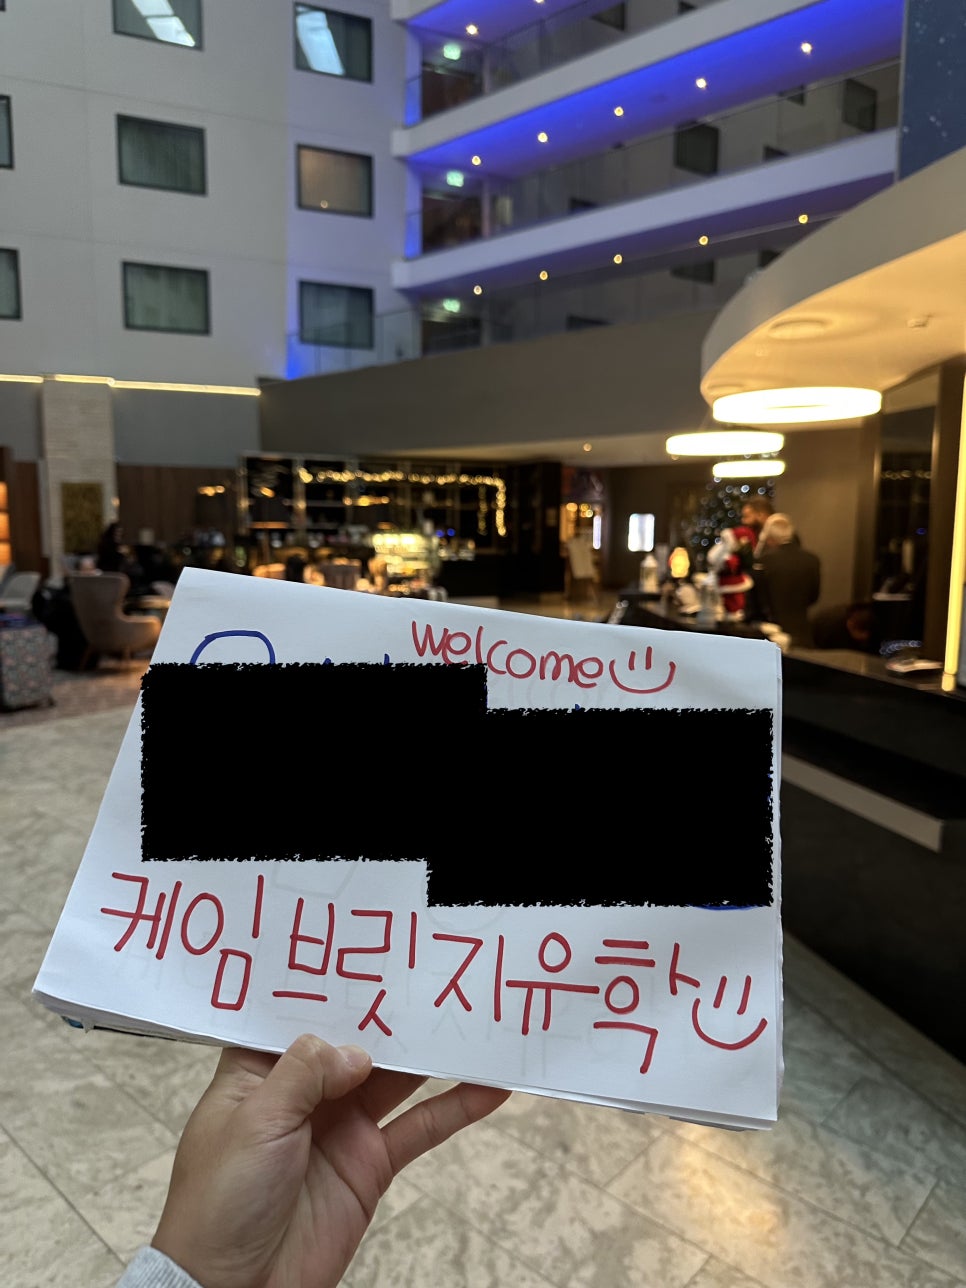 welcome
케임브릿지유학